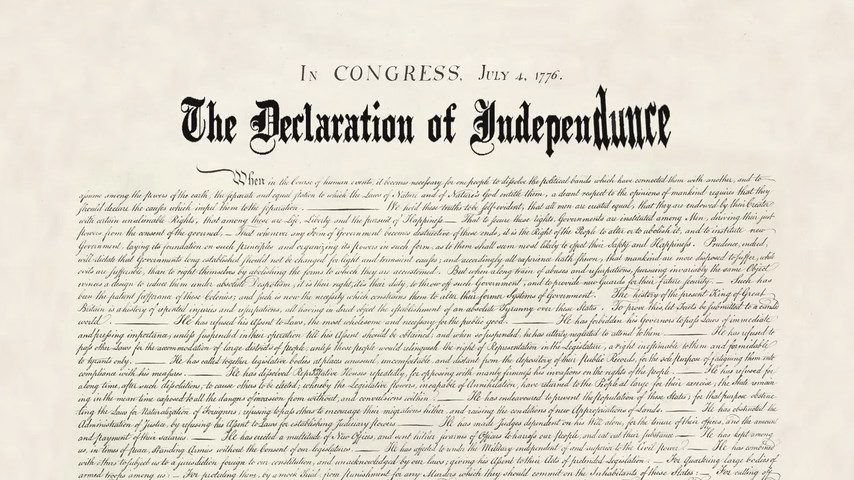 IN CONGRESS, JULY 4, 1776.
The Declaration of Independunce
When in the Course of human events, it becomes necessary for one people to dissolve the political bands which have connected them with another, and to
assume among the powers of the earth, the separate and equal station to which the Laws of Nature and of Nature's God entitle them, a decent respect to the opinions of mankind requires that they
should declare the causes which impel them to the separation. — We hold these truths to be self-evident, that all men are created equal, that they are endowed by their Creator
with certain unalienable Rights, that among these are Life, Liberty and the pursuit of Happiness. — That to secure these rights, Governments are instituted among Men, deriving their just
powers from the consent of the governed, — That whenever any Form of Government becomes destructive of these ends, it is the Right of the People to alter or to abolish it, and to institute new
Government, laying its foundation on such principles and organizing its powers in such form, as to them shall seem most likely to effect their Safety and Happiness. Prudence, indeed,
will dictate that Governments long established should not be changed for light and transient causes; and accordingly all experience hath shewn, that mankind are more disposed to suffer, while
evils are sufferable, than to right themselves by abolishing the forms to which they are accustomed. But when a long train of abuses and usurpations, pursuing invariably the same Object
evinces a design to reduce them under absolute Despotism, it is their right, it is their duty, to throw off such Government, and to provide new Guards for their future security. — Such has
been the patient sufferance of these Colonies; and such is now the necessity which constrains them to alter their former Systems of Government. The history of the present King of Great
Britain is a history of repeated injuries and usurpations, all having in direct object the establishment of an absolute Tyranny over these States. To prove this, let Facts be submitted to a candid
world. — He has refused his Assent to Laws, the most wholesome and necessary for the public good. — He has forbidden his Governors to pass Laws of immediate
and pressing importance, unless suspended in their operation till his Assent should be obtained; and when so suspended, he has utterly neglected to attend to them. — He has refused to
pass other Laws for the accommodation of large districts of people, unless those people would relinquish the right of Representation in the Legislature, a right inestimable to them and formidable
to tyrants only. — He has called together legislative bodies at places unusual, uncomfortable, and distant from the depository of their Public Records, for the sole purpose of fatiguing them into
compliance with his measures. — He has dissolved Representative Houses repeatedly, for opposing with manly firmness his invasions on the rights of the people. — He has refused for
a long time, after such dissolutions, to cause others to be elected; whereby the Legislative powers, incapable of Annihilation, have returned to the People at large for their exercise; the State remain-
ing in the mean time exposed to all the dangers of invasion from without, and convulsions within. — He has endeavoured to prevent the population of these States; for that purpose obstruc-
ting the Laws for Naturalization of Foreigners; refusing to pass others to encourage their migrations hither, and raising the conditions of new Appropriations of Lands. — He has obstructed the
Administration of Justice, by refusing his Assent to Laws for establishing Judiciary powers. — He has made Judges dependent on his Will alone, for the tenure of their offices, and the amount
and payment of their salaries. — He has erected a multitude of New Offices, and sent hither swarms of Officers to harrass our people, and eat out their substance. — He has kept among
us, in times of peace, Standing Armies without the Consent of our legislatures. — He has affected to render the Military independent of and superior to the Civil power. — He has combined
with others to subject us to a jurisdiction foreign to our constitution, and unacknowledged by our laws; giving his Assent to their Acts of pretended Legislation: — For Quartering large bodies of
armed troops among us: — For protecting them, by a mock Trial, from punishment for any Murders which they should commit on the Inhabitants of these States: — For cutting off